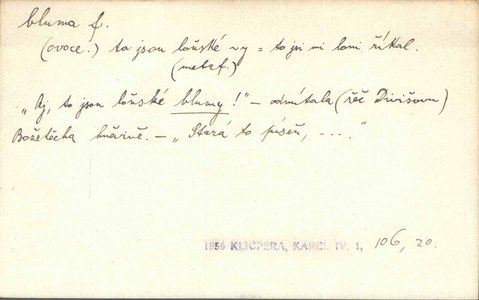 bluma f.
(ovoce.) to jsou loňské ~y = to jsi mi loni říkal.
(metaf.)
„Aj, to jsou loňské blumy!" – odmítala (řeč Divišovu)
Božetěcha hněvivě. – „Stará to píseň, – . . . "
1856 KLICPERA, KAREL IV. 1, 106, 20.